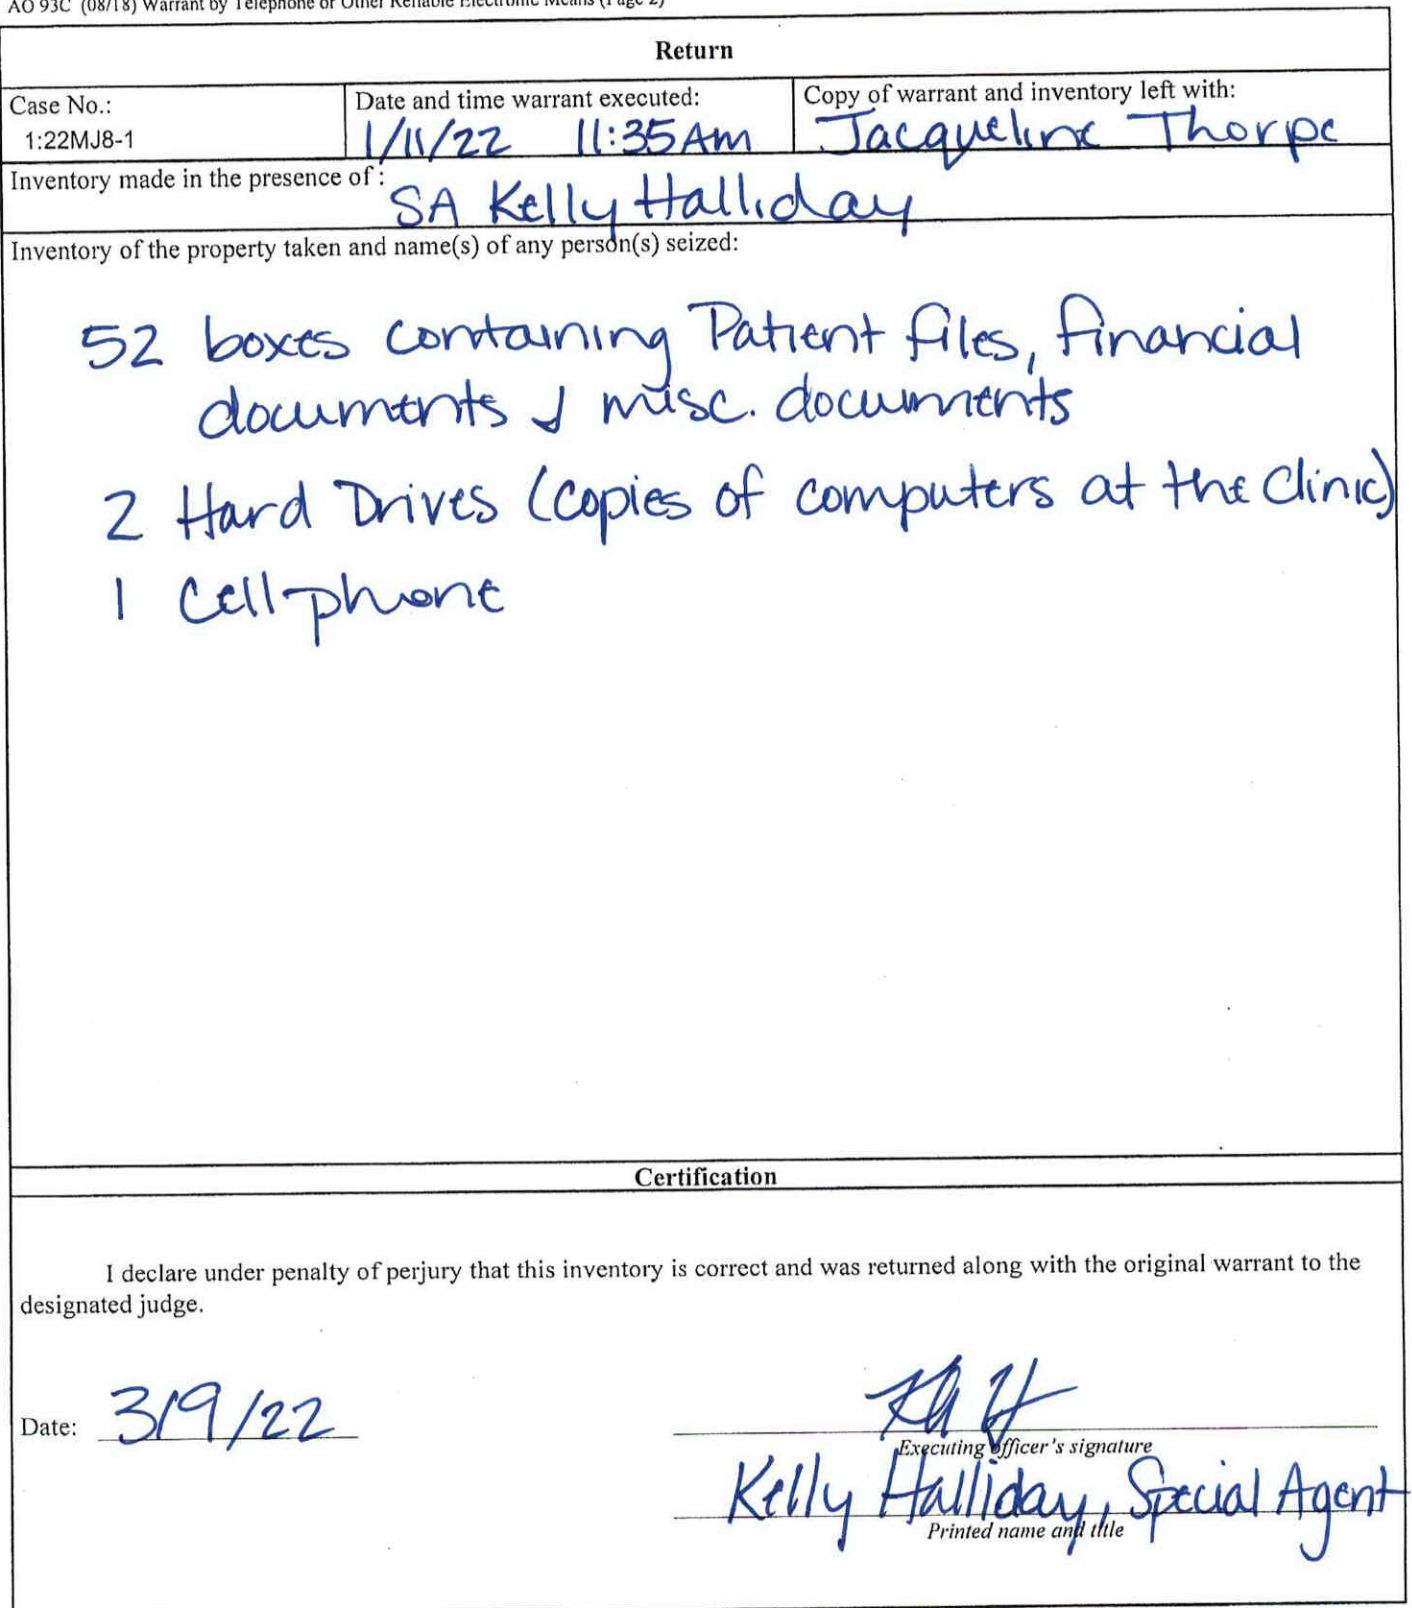 AO 93C (08/18) Warrant by Telephone or Other Reliable Electronic Means (Page 2)
Return
Case No.:
1:22MJ8-1
Date and time warrant executed:
1/11/22 11:35AM
Copy of warrant and inventory left with:
Jacqueline Thorpe
Inventory made in the presence of :
SA Kelly Halliday
Inventory of the property taken and name(s) of any person(s) seized:
52 boxes containing Patient files, financial
documents & misc. documents
2 Hard Drives (copies of computers at the Clinic)
1 Cell phone
Certification
I declare under penalty of perjury that this inventory is correct and was returned along with the original warrant to the
designated judge.
Date: 3/9/22
Executing officer's signature
Kelly Halliday, Special Agent
Printed name and title